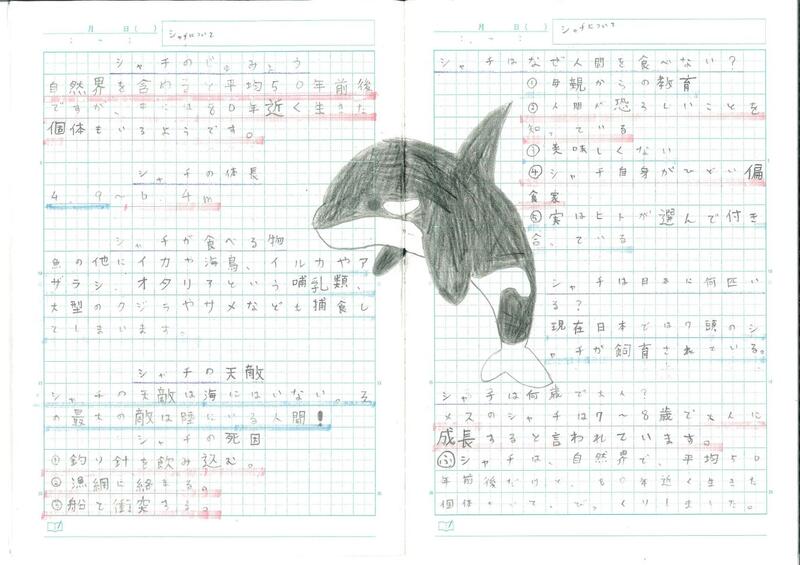 月 日( )
: ~ :
シャチについて
シャチのじゅみょう
自然界を含めると平均50年前後
ですが、中には80年近く生きた
個体もいるようです。
シャチの体長
4.9~6.4m
シャチが食べる物
魚の他にイカや海鳥、イルカやア
ザラシ、オタリアという哺乳類、
大型のクジラやサメなども捕食し
てしまいます。
シャチの天敵
シャチの天敵は海にはいない。そ
の最大の敵は陸にいる人間!
シャチの死因
①釣り針を飲み込む。
②漁網に絡まる。
③船と衝突する。
月 日( )
: ~ :
シャチについて
シャチはなぜ人間を食べない?
①母親からの教育
②人間が恐ろしいことを
知っている
③美味しくない
④シャチ自身がひどい偏
食家
⑤実はヒトが選んで付き
合っている
シャチは日本に何匹い
る?
現在日本では7頭のシ
ャチが飼育されている。
シャチは何歳で大人?
メスのシャチは7~8歳で大人に
成長すると言われています。
ふシャチは、自然界で、平均50
年前後だけど、80年近く生きた
個体がいて、びっくりしました。